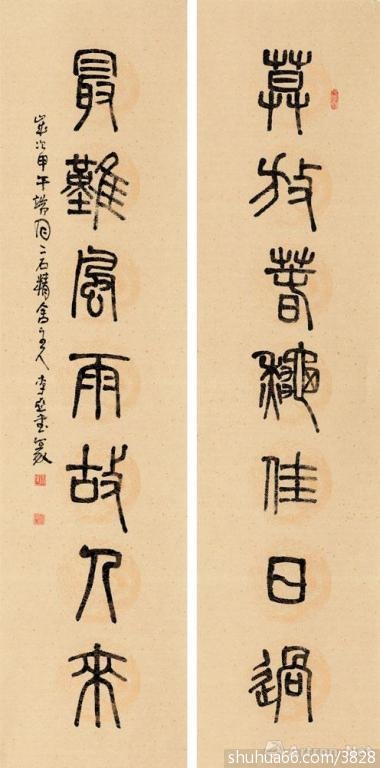 莫放春秋佳日過
最難風雨故人來
歲次甲午端月二石精舍主人李篆
Artron.Net
shuhua66.com/3828